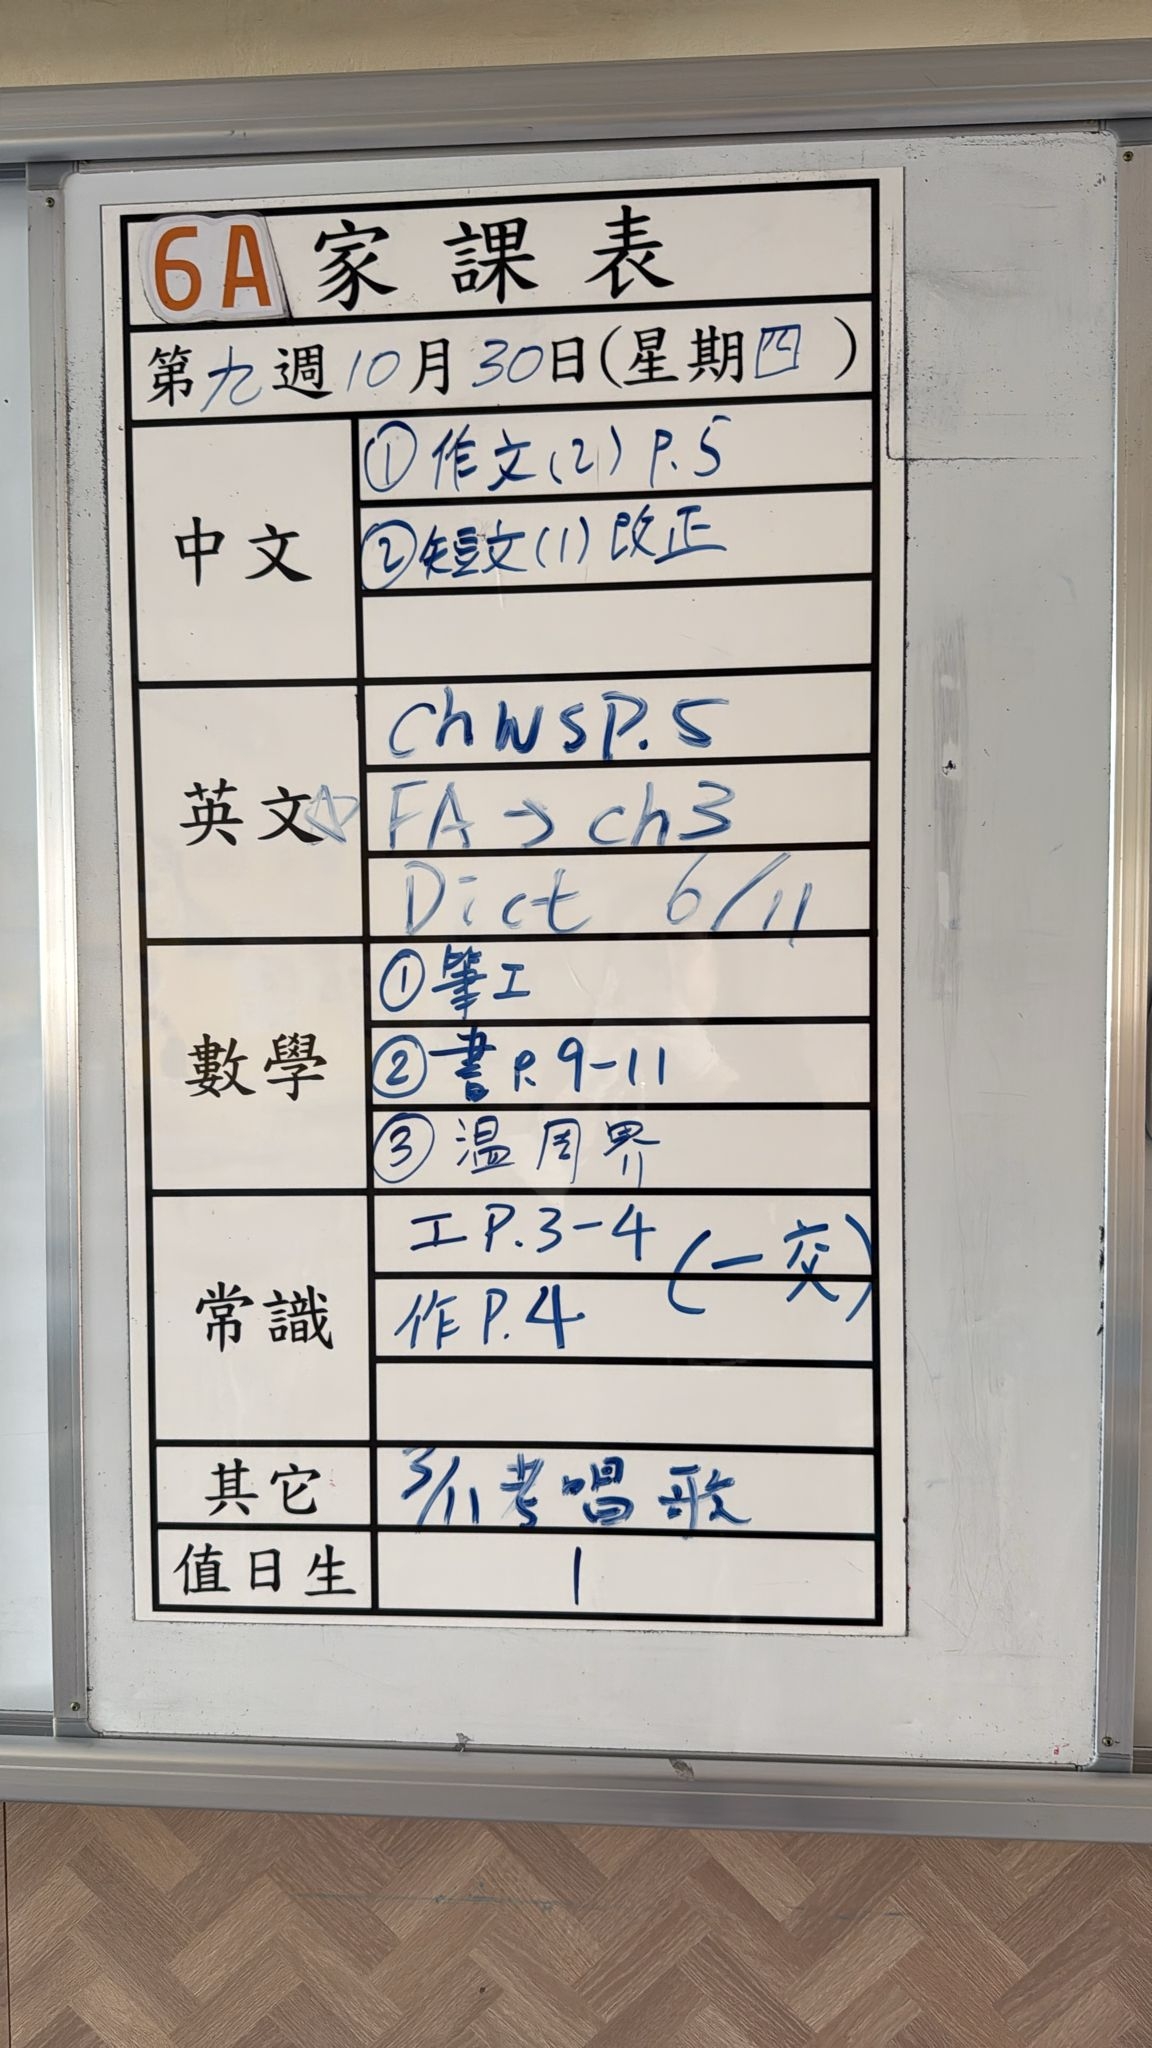 6A 家課表
第九週10月30日(星期四)
中文
①作文(2) P.5
②短文(1)改正
英文
Ch WS P.5
FA → ch3
Dict 6/11
數學
①筆工
②書P.9-11
③溫周界
常識
工P.3-4
(一交)
作P.4
其它
3/11考唱歌
值日生
1